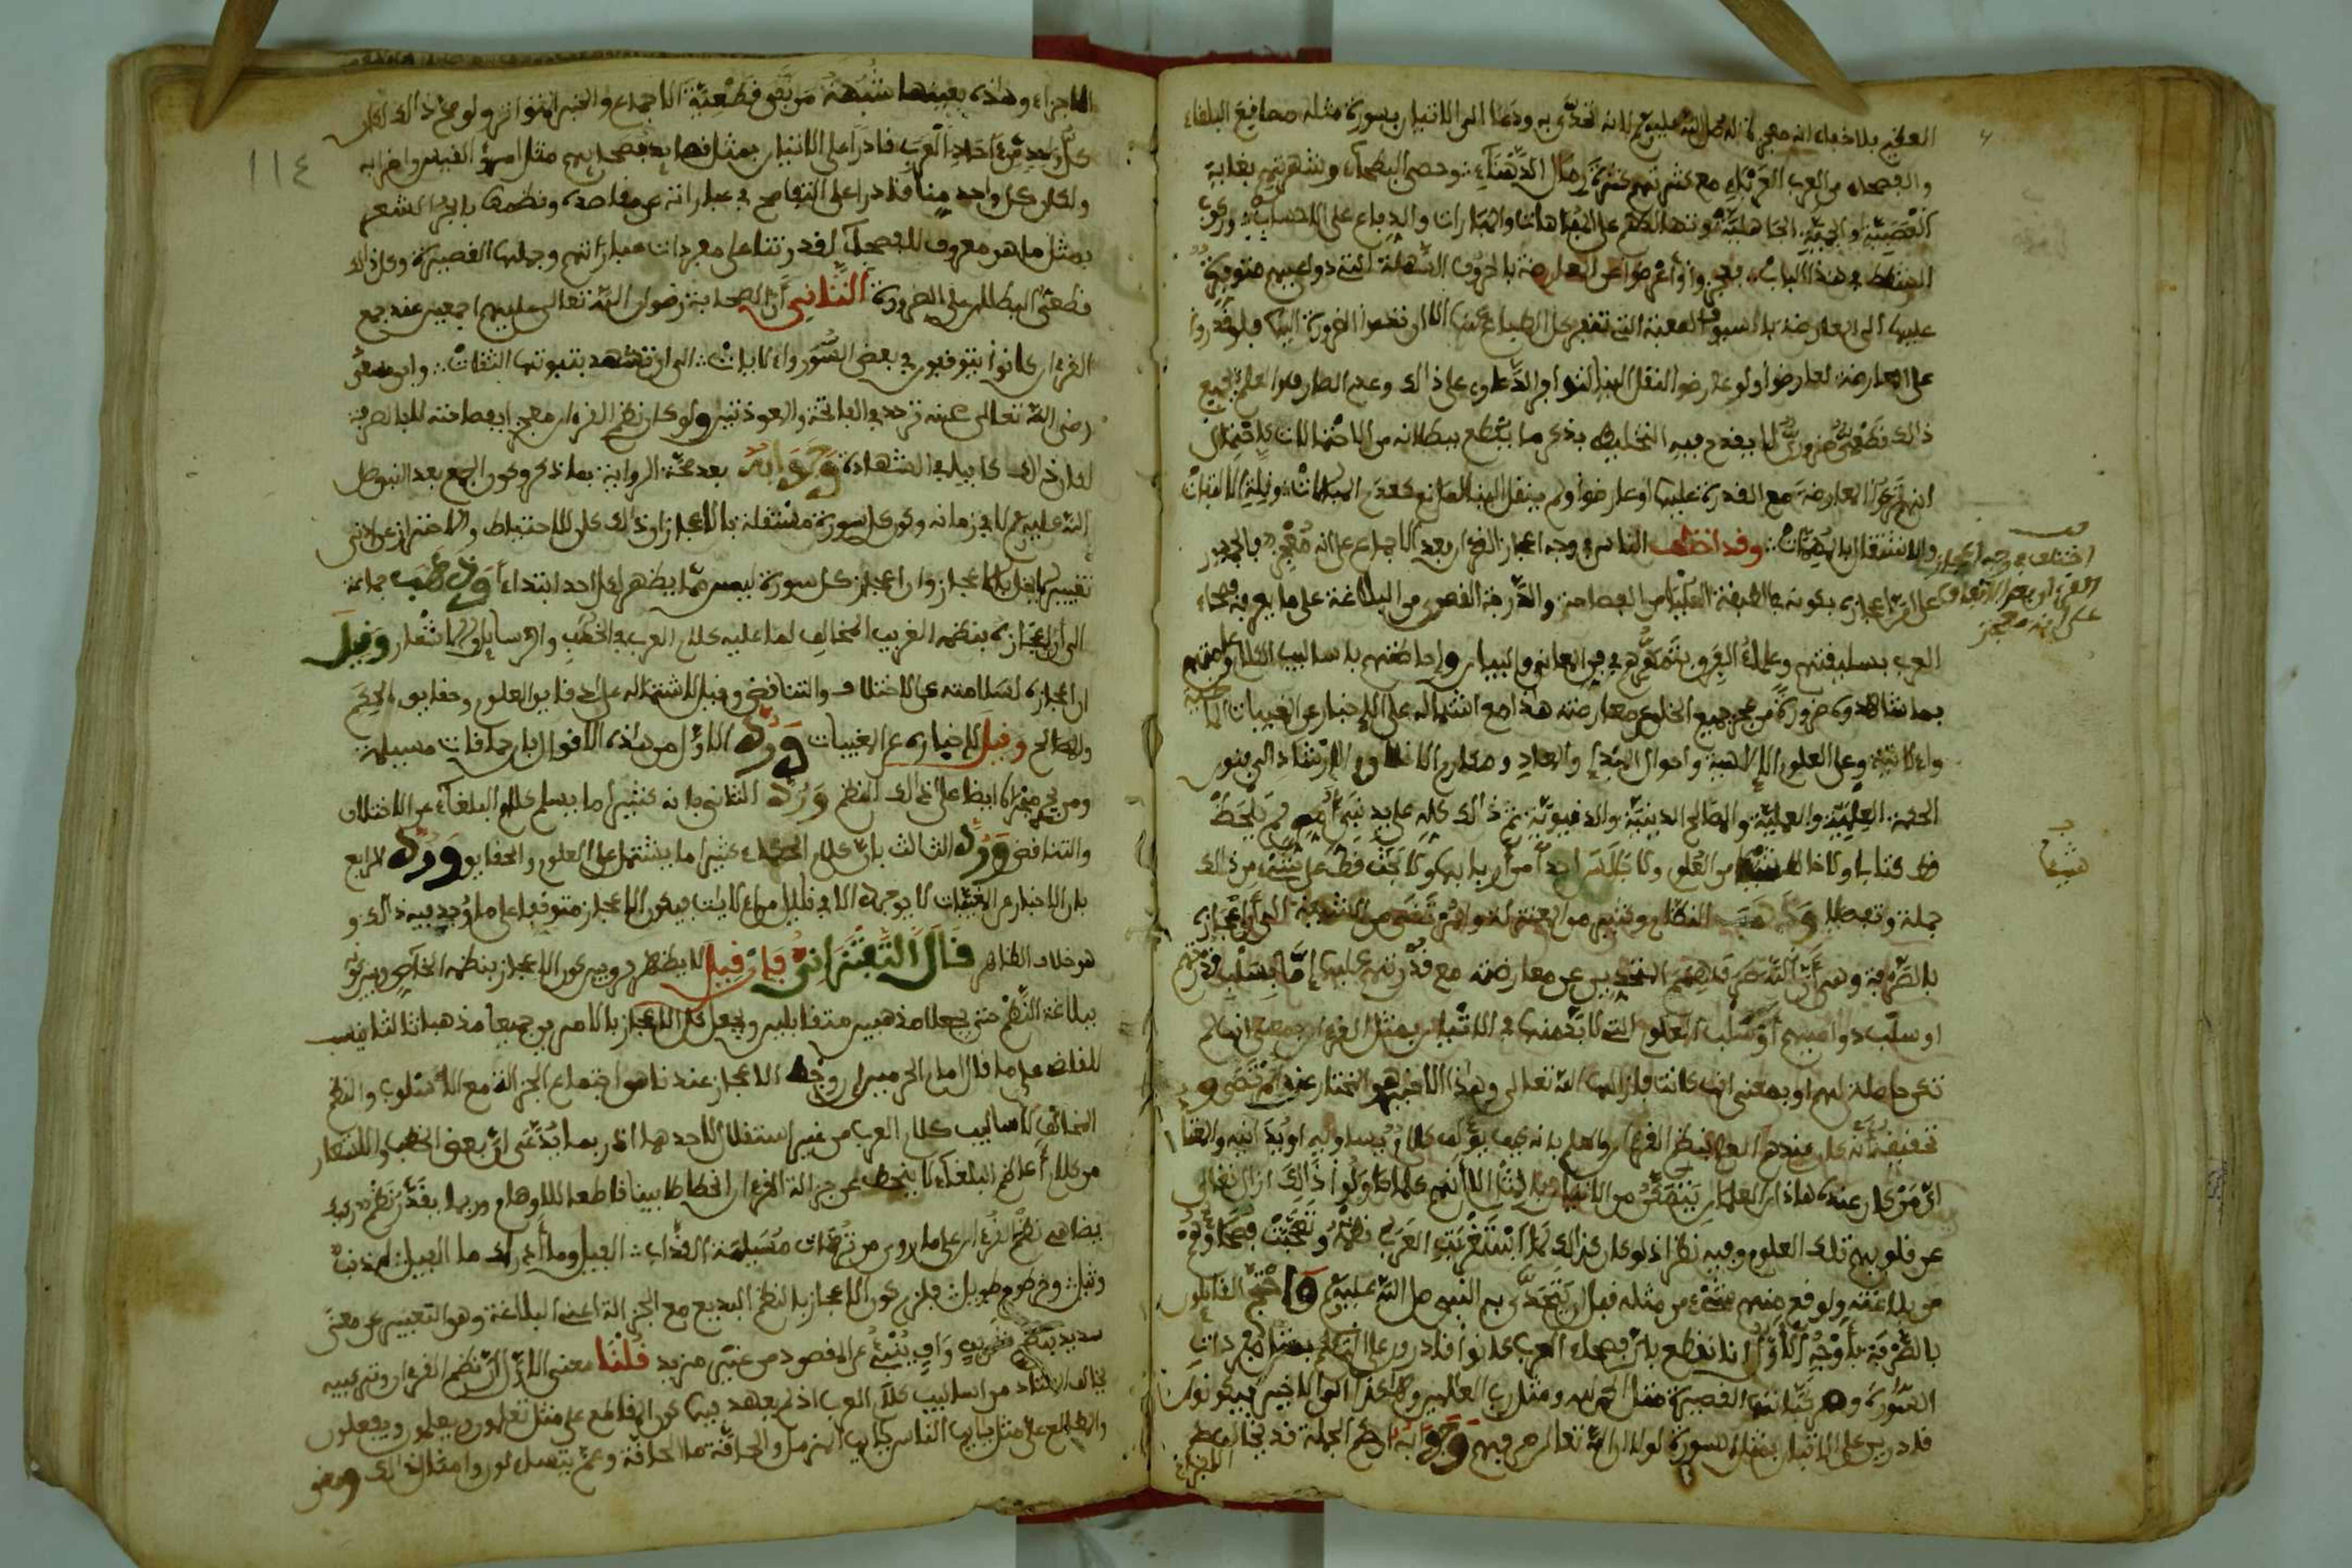 العظيم بلا خفاء انه معجزة له صلى الله عليه وسلم لانه تحدى به ودعا الى الاتيان بسورة مثله مصاقع البلغاء
والفصحاء من العرب العرباء مع كثرتهم كثرة رمال الدهناء وحصى البطحاء وشهرتهم بغاية
العصبية والحمية الجاهلية وتهالكهم على المباهات والمبارات والدفاع على الاحساب وركوب
الشطط في هذا الباب فعجزوا واعرضوا عن المعارضة بالحروف السهلة التي دواعيهم متوفرة
عليها الى المعارضة بالسيوف الصعبة التي تنفر كل الطباع عنها الا ان تضم الضرورة اليها فلو قدروا
على المعارضة لعارضوا ولو عارضوا لنقل الينا لتوافر الدواعي على ذالك وعدم الصارف والعلم بجميع
ذالك قطعي ضروري لا يقدح فيه التخليط بذكر ما يقطع ببطلانه من الاحتمالات كاحتمال
انهم تركوا المعارضة مع القدرة عليها او عارضوا ولم ينقل الينا لمانع كعدم المبالات وقلة الالتفات
والاشتغال بالمهمات وقد اختلف الناس في وجه اعجاز القرءان بعد الاجماع على انه معجز فالجمهور
على ان اعجازه بكونه في الطبقة العليا من الفصاحة والدرجة القصوى من البلاغة على ما يعرفه فصحاء
العرب بسليقتهم وعلماء الفرق بتمهرهم في فن المعاني والبيان واحاطتهم باساليب الكلام وعامتهم
بما شاهدوه ضرورة من عجز جميع الخلق عن معارضته هذا مع اشتماله على الاخبار عن المغيبات الماضية
والاتية وعلى العلوم الالاهية واحوال المبدإ والمعاد ومكارم الاخلاق والارشاد الى فنون
الحكمة العلمية والعملية والمصالح الدينية والدنيوية ثم ذالك كله على يد نبي امي لم يخط
قط كتابا ولا خالط شيئا من العلوم ولا جالس احدا من اربابها ولا بحث قط عن شيء من ذالك
جملة وتفصيلا وذهب النظام وكثير من المعتزلة والمرتضى من الشيعة الى ان اعجازه
بالصرفة وهي ان الله صرف همم المتحدين عن معارضته مع قدرتهم عليها اما بسلب قدرتهم
او سلب دواعيهم او سلب العلوم التي لا بد منها في الاتيان بمثل القرءان بمعنى انها لم
تكن حاصلة لهم او بمعنى انها كانت فازالها الله تعالى وهذا الاخير هو المختار عند المرتضى و
تحقيقه انه كان عندهم العلم بنظم القرءان والعلم بانه كيف يؤلف كلام يساويه او يدانيه والمعتاد
ان من كان عنده هاذان العلمان يتمكن من الاتيان بالمثل الا انهم كلما حاولوا ذالك ازال تعالى
عن قلوبهم تلك العلوم وفيه نظر اذ لو كان كذالك لما استغربت العرب نظمه وتعجبت فصحاؤه
من بلاغته ولوقع منهم شيء من مثله قبل ان يتحدى به النبي صلى الله عليه وسلم واحتج القائلون
بالصرفة بأوجه الاول انا نقطع بان فصحاء العرب كانوا قادرين على التكلم بمثل مفردات
السورة ومركباتها القصيرة مثل الحمد لله ومثل رب العالمين وهكذا الى الاخير فيكونون
قادرين على الاتيان بمثل السورة لولا ان الله تعالى صرفهم وجوابه ان حكم الجملة قد يخالف حكم
الاجزاء
اختلف في وجه اعجاز
القرءان بعد الاتفاق
على انه معجز
١١٤
الاجزاء وهذه بعينها شبهة من نفى قطعية الاجماع والخبر المتواتر ولو صح ذالك لكان
كل واحد من ءاحاد العرب قادرا على الاتيان بمثل قصايد فصحايهم مثل امرؤ القيس واضرابه
ولكان كل واحد منا قادرا على التفاصح في عباراته عن مقاصده ونظمها بابحر الشعر
بمثل ما هو معروف للفصحاء لقدرتنا على مفردات عباراتهم وجملها القصيرة وكل ذالك
قطعي البطلان على الضرورة الثاني ان الصحابة رضوان الله تعالى عليهم اجمعين عند جمع
القرءان كانوا يتوقفون في بعض السور والايات الى ان تشهد بثبوتها الثقات وابن مسعود
رضي الله تعالى عنه تردد في الفاتحة والمعوذتين ولو كان نظم القرءان معجزا بفصاحته لا بالصرفة
لكان ذالك كافيا في الشهادة وجوابه بعد صحة الرواية بما ذكر وكون الجمع بعد النبي صلى
الله عليه وسلم لا في زمانه وكون كل سورة مستقلة بالاعجاز ان ذالك كان للاحتياط والاحتراز عن ادنى
تغيير لا يخل بالاعجاز وان اعجاز كل سورة ليس مما يظهر لكل احد ابتداء وذهب جماعة
الى ان اعجازه بنظمه الغريب المخالف لما عليه كلام العرب في الخطب والرسايل والاشعار وقيل
ان اعجازه لسلامته عن الاختلاف والتناقض وقيل لاشتماله على دقايق العلوم وحقايق الحكم
والمصالح وقيل لاخباره عن المغيبات ورد الاول من هذه الاقوال بان حماقات مسيلمة
ومن يجري مجراه ايضا على ذالك النظم ورد الثاني بانه كثيرا ما يسلم كلام البلغاء عن الاختلاف
والتناقض ورد الثالث بان كلام الحكماء كثيرا ما يشتمل على العلوم والحقايق ورد الرابع
بان الاخبار عن المغيبات لا يوجد الا في قليل من الايات فيكون الاعجاز متوقفا على ما وجد فيه ذالك و
هو خلاف الظاهر قال التفتزاني فإن قيل لا يظهر فرق بين كون الاعجاز بنظمه الخاص وبين كونه
ببلاغة النظم حتى يجعلا مذهبين متقابلين ويجعل كون الاعجاز بالامرين جميعا مذهبا ثالثا ينسب
للقاضي على ما قال امام الحرمين ان وجه الاعجاز عندنا هو اجتماع الجزالة مع الاسلوب والنظم
المخالف لاساليب كلام العرب من غير استقلال لاحدهما اذ ربما يدعى ان بعض الخطب والاشعار
من كلام أعاظم البلغاء لا ينحط عن جزالة القرءان انحطاطا بينا قاطعا للاوهام وربما يقدر نظم ركيك
يضاهي نظم القرءان على ما روي من ترهات مسيلمة الكذاب الفيل وما أدراك ما الفيل له ذنب
وثيل وخرطوم طويل فلزم كون الاعجاز بالنظم البديع مع الجزالة اعني البلاغة وهو التعبير عن معنى
سديد بنظم شريف واف ينبئ عن المقصود من غير مزيد قلنا معنى الاول ان نظم القرءان وتركيبه
يخالف المعتاد من اساليب كلام العرب اذ لم يعهد فيها كون المقاطع على مثل تعلمون ويعلمون ويفعلون
والمطالع على مثل يا أيها الناس يا أيها المزمل والحاقة ما الحاقة وعم يتساءلون وامثال ذالك ومعنى